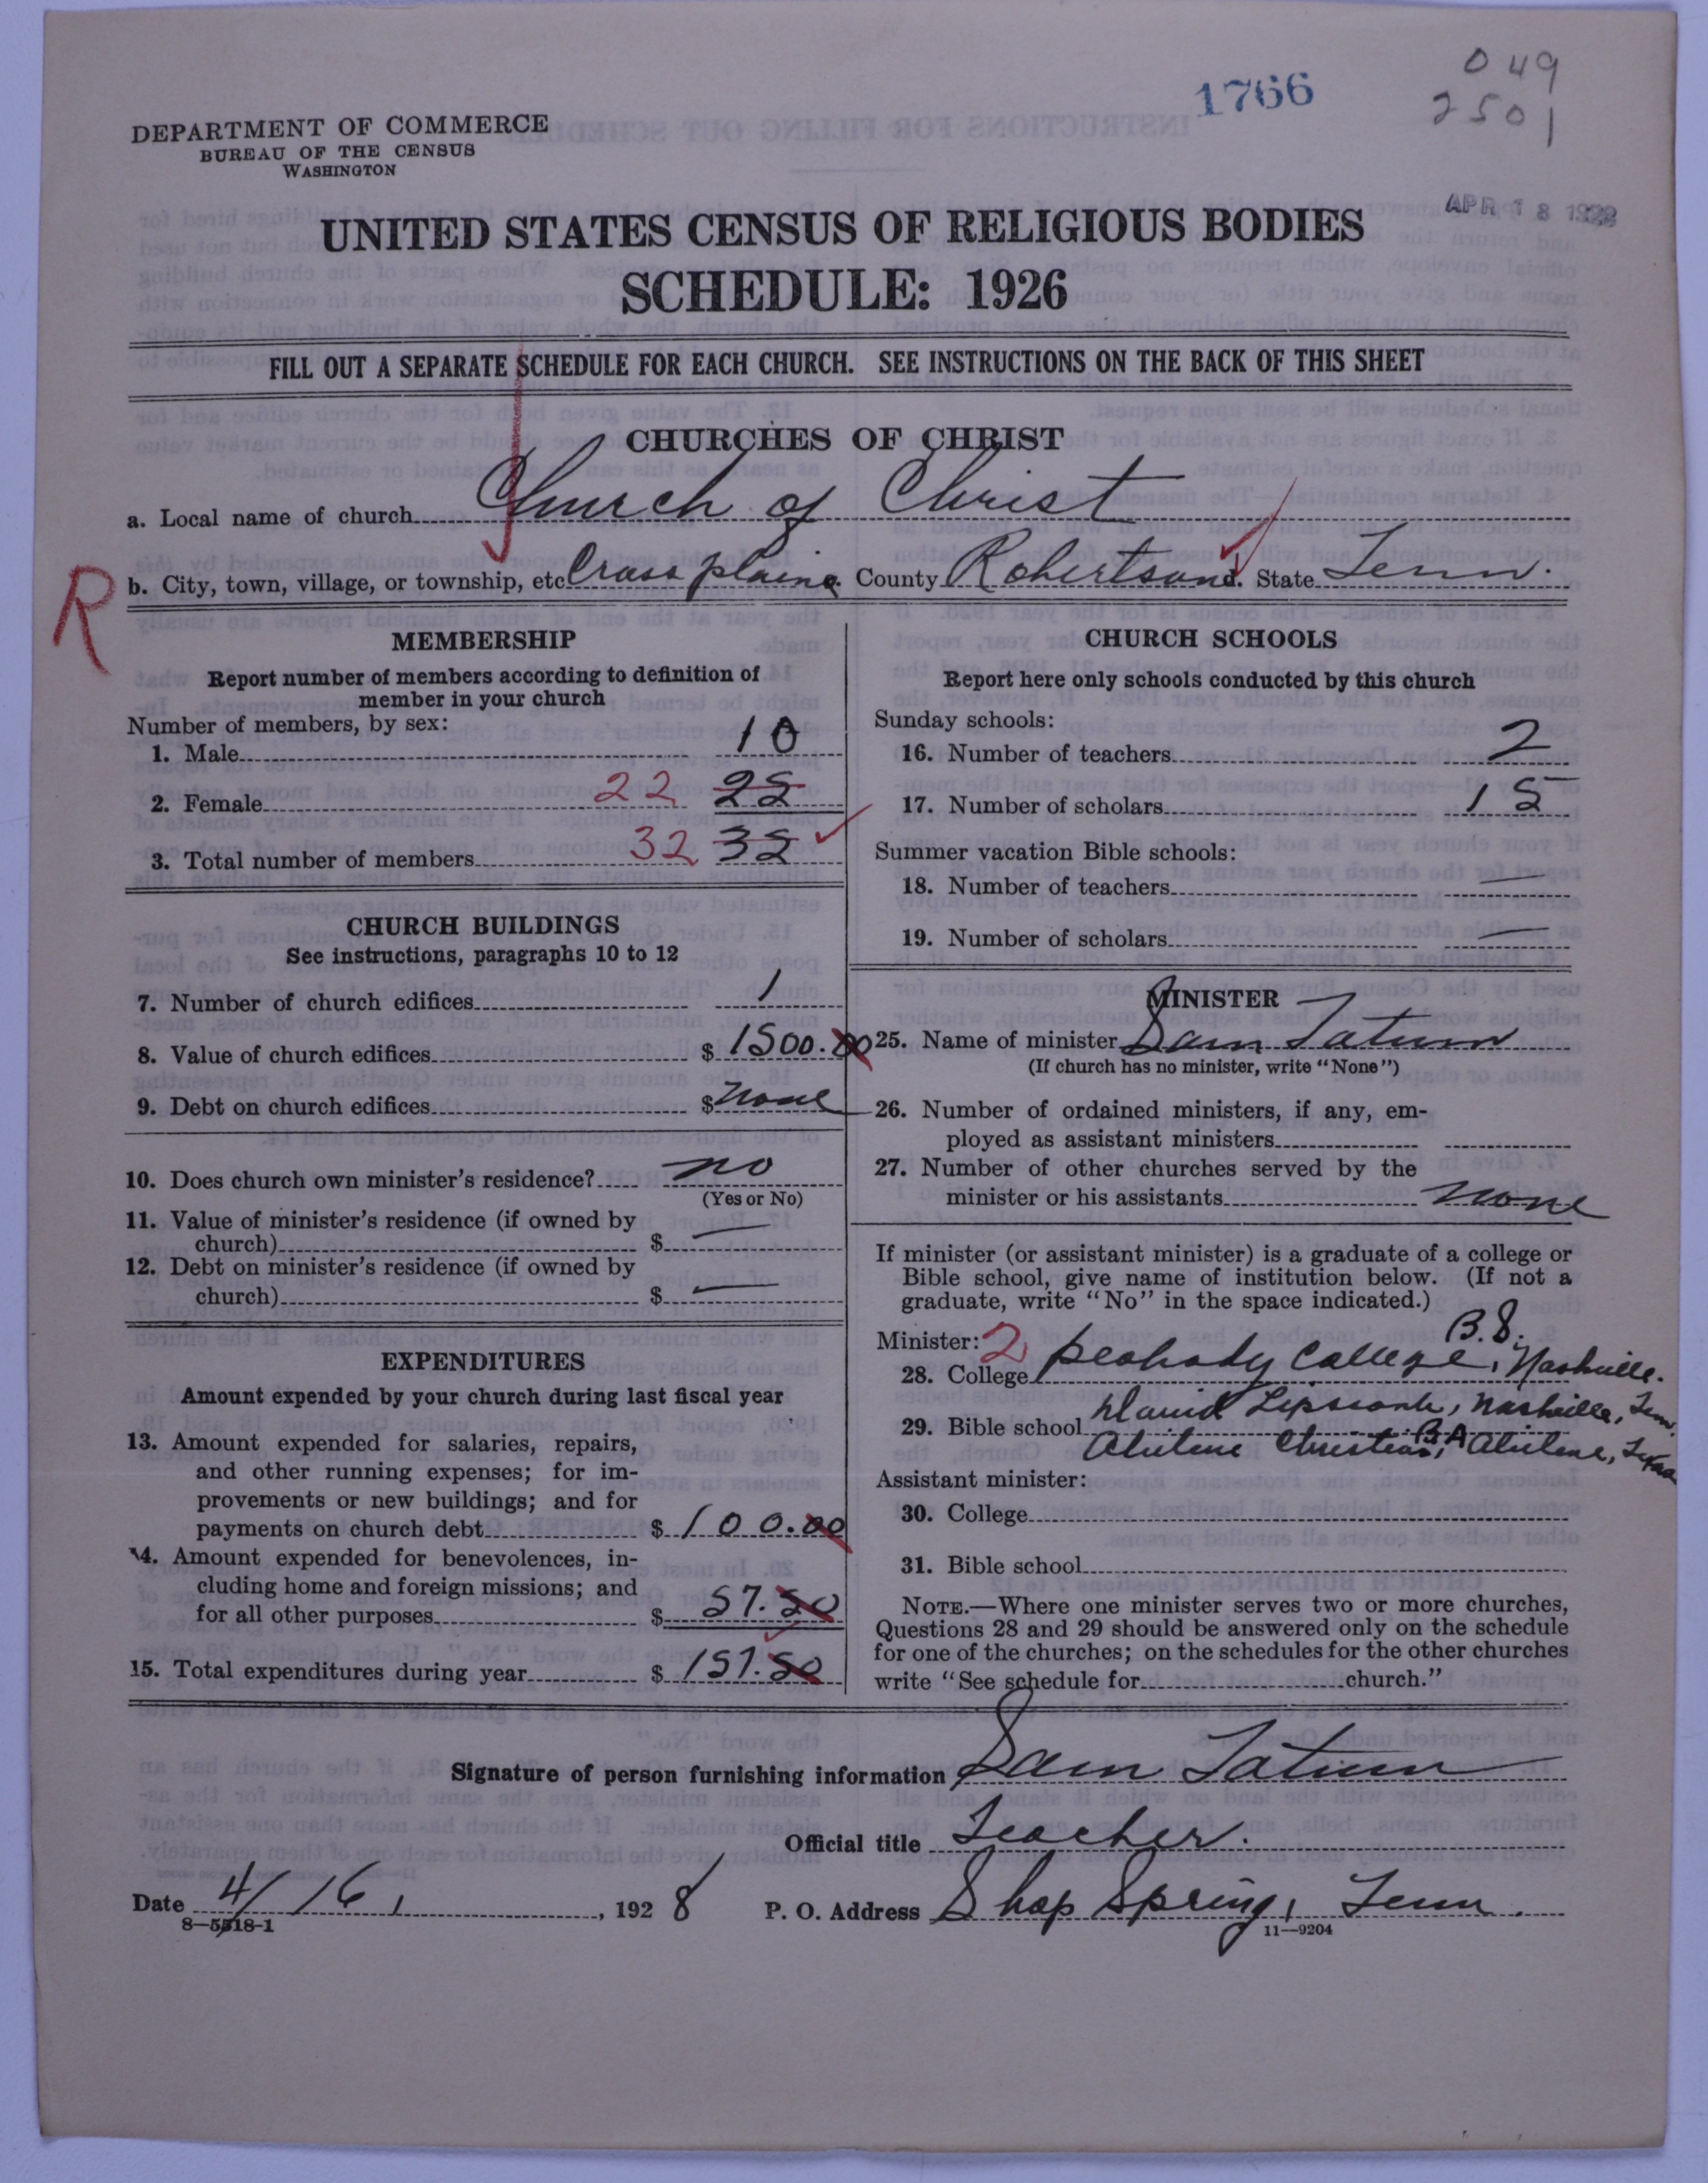 049
2501
1766
DEPARTMENT OF COMMERCE
BUREAU OF THE CENSUS
WASHINGTON
APR 18 1928
UNITED STATES CENSUS OF RELIGIOUS BODIES
SCHEDULE: 1926
FILL OUT A SEPARATE SCHEDULE FOR EACH CHURCH. SEE INSTRUCTIONS ON THE BACK OF THIS SHEET
CHURCHES OF CHRIST
a. Local name of church Church of Christ
R b. City, town, village, or township, etc Cross plains. County Robertson. State Tenn.
MEMBERSHIP
Report number of members according to definition of
member in your church
Number of members, by sex:
1. Male 10
2. Female 22 22
3. Total number of members 32 32
CHURCH BUILDINGS
See instructions, paragraphs 10 to 12
7. Number of church edifices 1
8. Value of church edifices $ 1500.00
9. Debt on church edifices $ none
10. Does church own minister's residence? no
(Yes or No)
11. Value of minister's residence (if owned by
church) $ —
12. Debt on minister's residence (if owned by
church) $ —
EXPENDITURES
Amount expended by your church during last fiscal year
13. Amount expended for salaries, repairs,
and other running expenses; for im-
provements or new buildings; and for
payments on church debt $ 100.00
14. Amount expended for benevolences, in-
cluding home and foreign missions; and
for all other purposes $ 57.50
15. Total expenditures during year $ 157.50
CHURCH SCHOOLS
Report here only schools conducted by this church
Sunday schools:
16. Number of teachers 2
17. Number of scholars 15
Summer vacation Bible schools:
18. Number of teachers —
19. Number of scholars —
MINISTER
25. Name of minister Sam Tatum
(If church has no minister, write "None")
26. Number of ordained ministers, if any, em-
ployed as assistant ministers
27. Number of other churches served by the
minister or his assistants none
If minister (or assistant minister) is a graduate of a college or
Bible school, give name of institution below. (If not a
graduate, write "No" in the space indicated.)
Minister: 2 B.S.
28. College Peabody College, Nashville.
29. Bible school David Lipscomb, Nashville, Tenn.
Abilene Christian, BA Abilene, Texas
Assistant minister:
30. College
31. Bible school
NOTE.—Where one minister serves two or more churches,
Questions 28 and 29 should be answered only on the schedule
for one of the churches; on the schedules for the other churches
write "See schedule for church."
Signature of person furnishing information Sam Tatum
Official title Teacher.
Date 4/16, 1928 P. O. Address Shop Spring, Tenn.
8—5518-1 11—9204